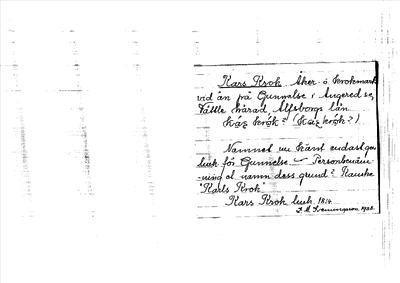 Kars Krok Åker o krokmark
vid ån på Gunnelse i Angered sn,
Vättle härad Älfsborgs län
Namnet nu känt endast gen
lisk för Gunnelse. Personbenäm
ning el namn dess grund? Kanske
"Karls Krok"
Kars Krok 1814